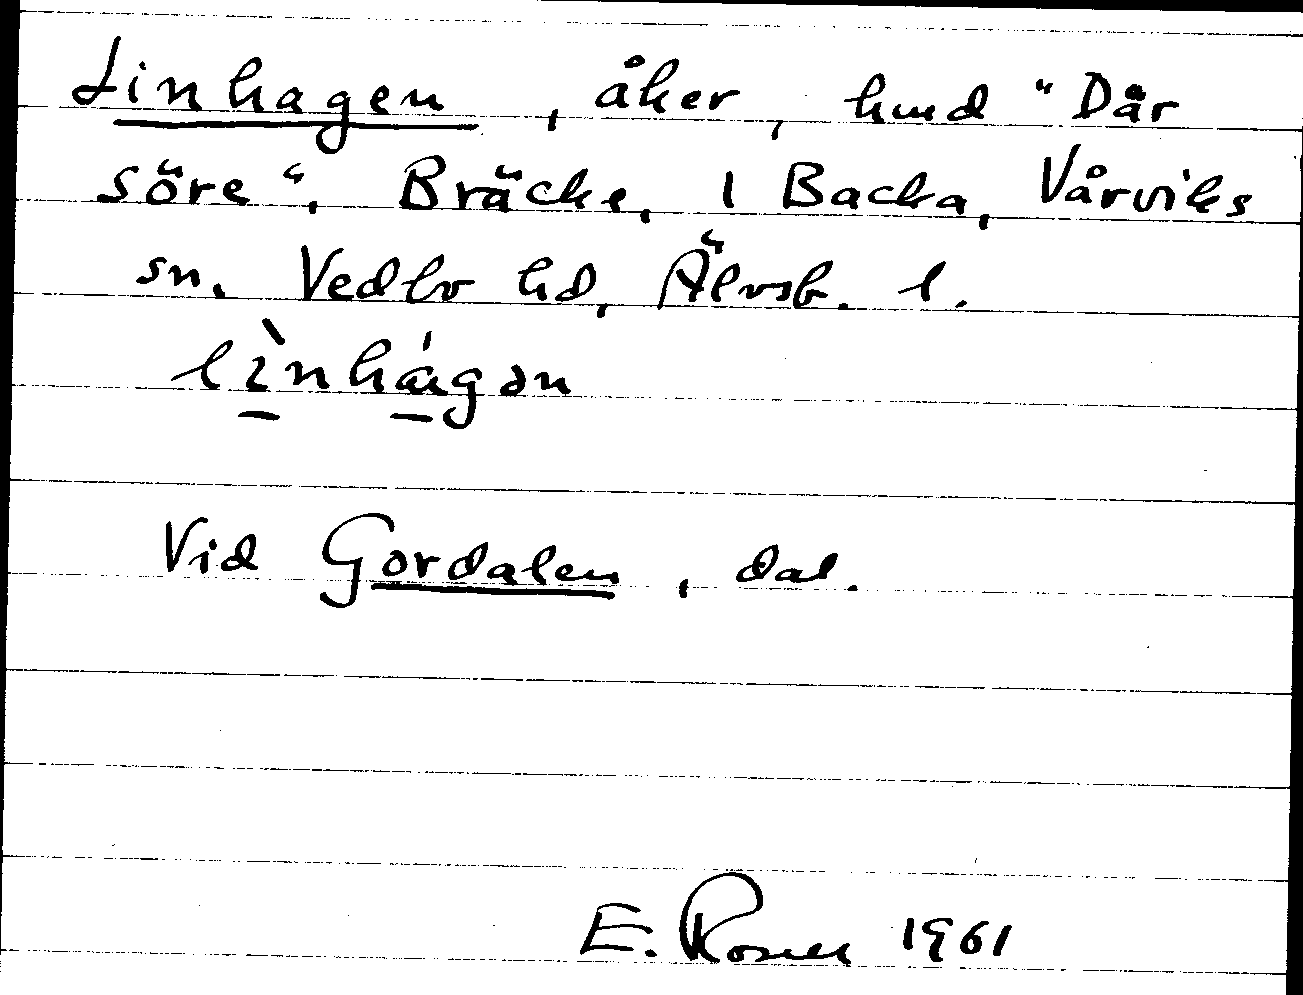 Linhagen, åker, hmd "Där
söre", Bräcke, 1 Backa, Vårviks
sn. Vedbo hd, Älvsb. l.
lìnhágən
Vid Gordalen, dal.
E. Rosner 1961